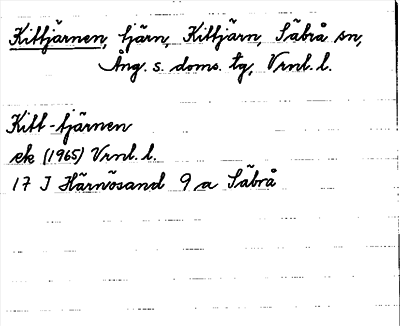 Kittjärnen, tjärn, Kittjärn, Säbrå sn,
Ång. s. doms. tg, Vrnl. l.
Kitt-tjärnen
ek (1965) Vrnl. l.
17 J Härnösand 9 a Säbrå